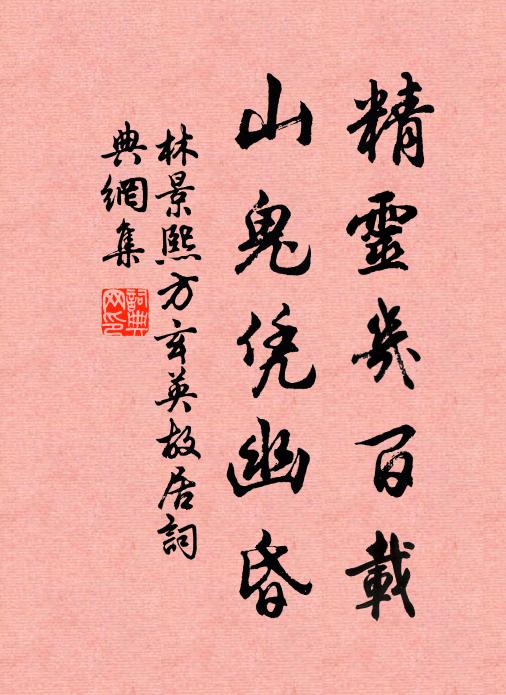 精靈幾百載
山鬼凭幽昏
林景熙方玄英故居詞
典網集
詞典網印